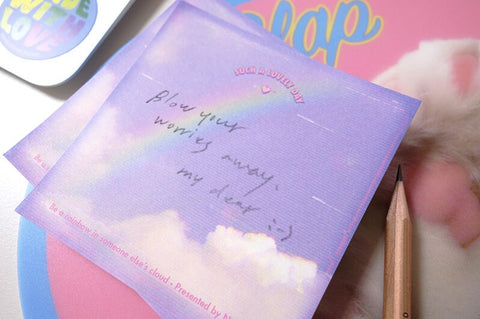 WITH
LOVE
SUCH A LOVELY DAY
Blow your
worries away,
my dear :-)
Be a rainbow in someone else's cloud • Presented by